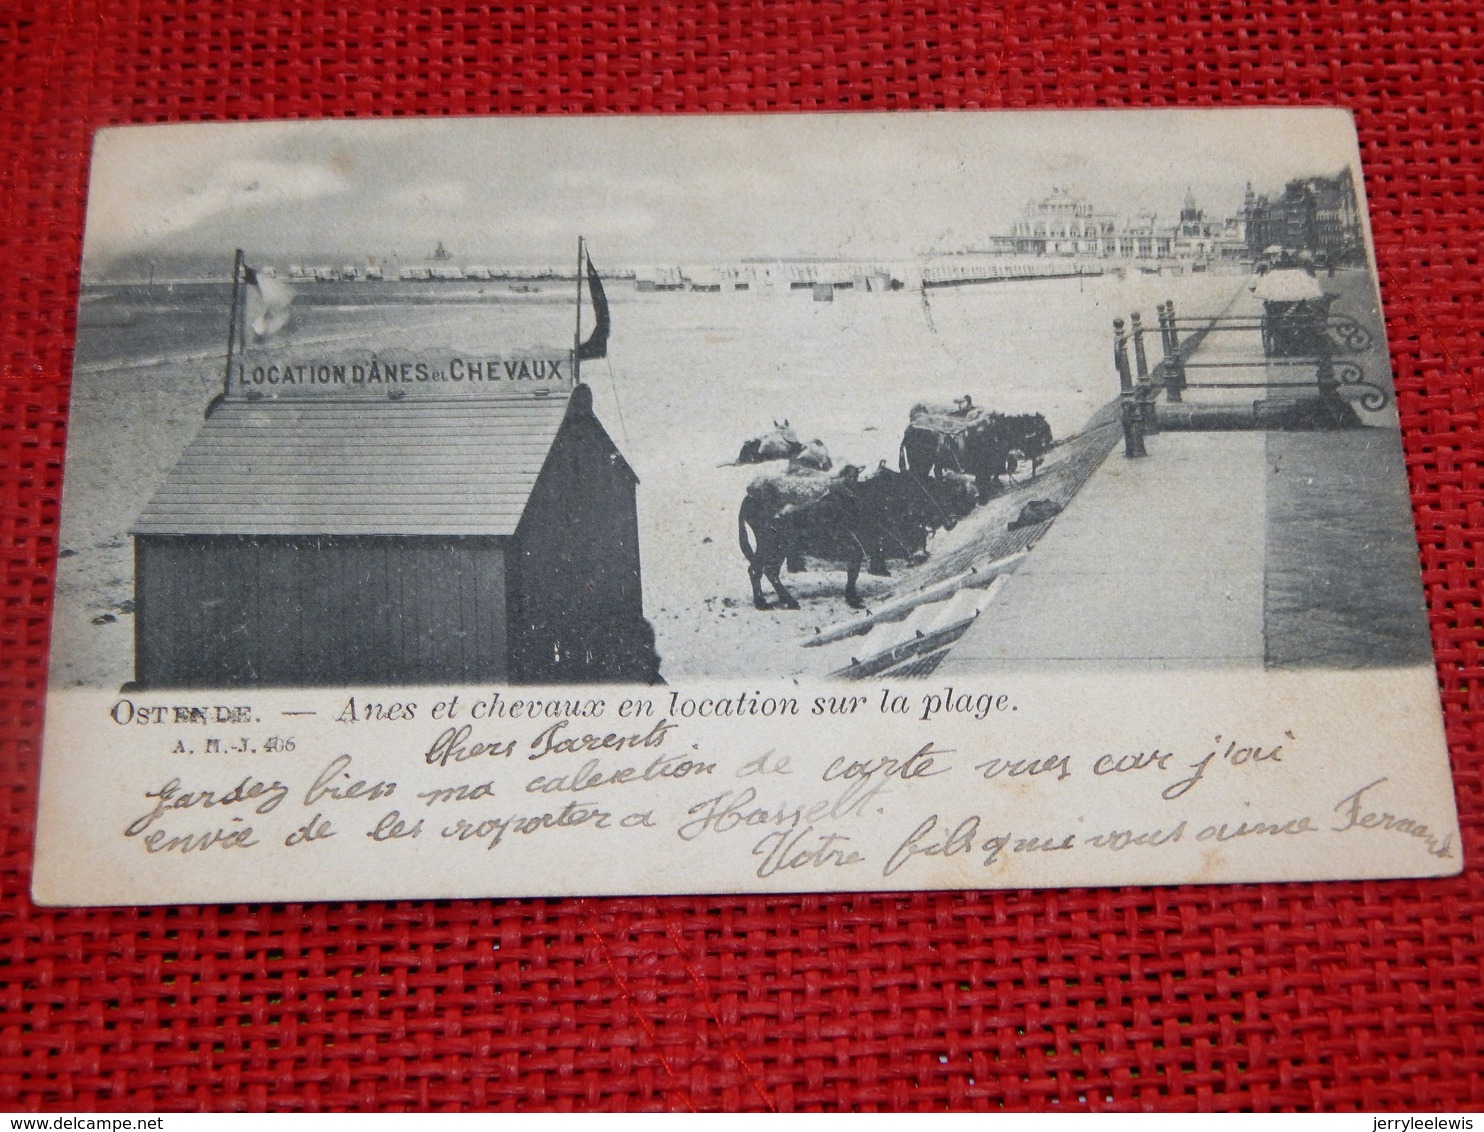 LOCATION D'ÂNES et CHEVAUX
OSTENDE. — Anes et chevaux en location sur la plage.
A. H.-J. 406
Chers Parents
Gardez bien ma calextion de carte vues car j'ai
envie de les raporter a Hasselt.
Votre fils qui vous aime Fernand
jerryleelewis